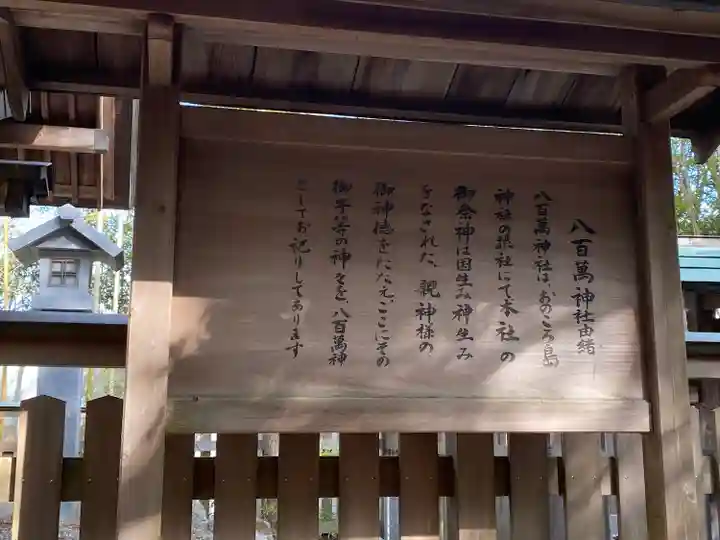 八百萬神社由緒
八百萬神社は、おのころ島
神社の摂社にて本社の
御祭神は国生み神生み
をなされた、親神様の
御神徳をたたえ、ここにその
御子等の神々を、八百萬神
としてお祀りしてあります